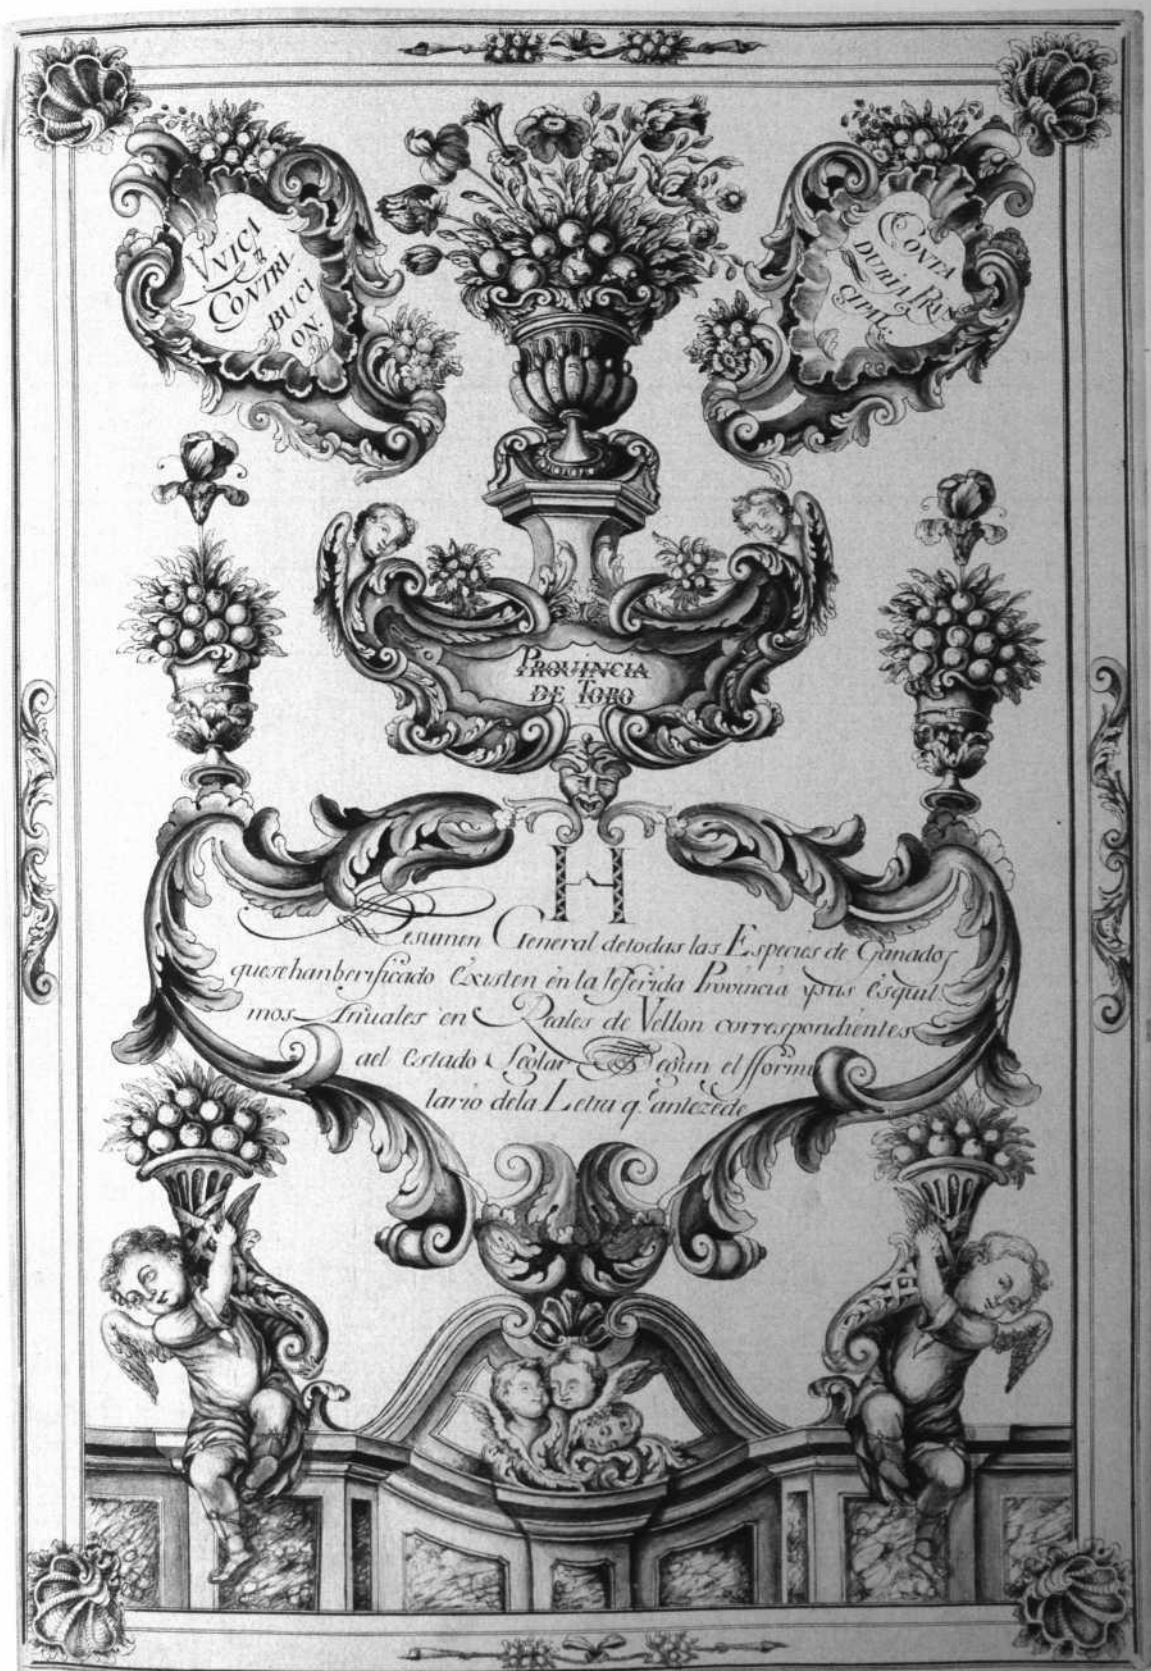 VNICA
CONTRI-
BUCI
ON.
CONTA
DURIA PRIN
CIPAL.
PROUINCIA
DE TORO
H
Resumen General detodas las Especies de Ganados
quesehanberificado Existen en la referida Provincia ysus esquil
mos Anuales en Reales de Vellon correspondientes
ael estado Seglar Segun el fformu
lario dela Letra q.e antezede